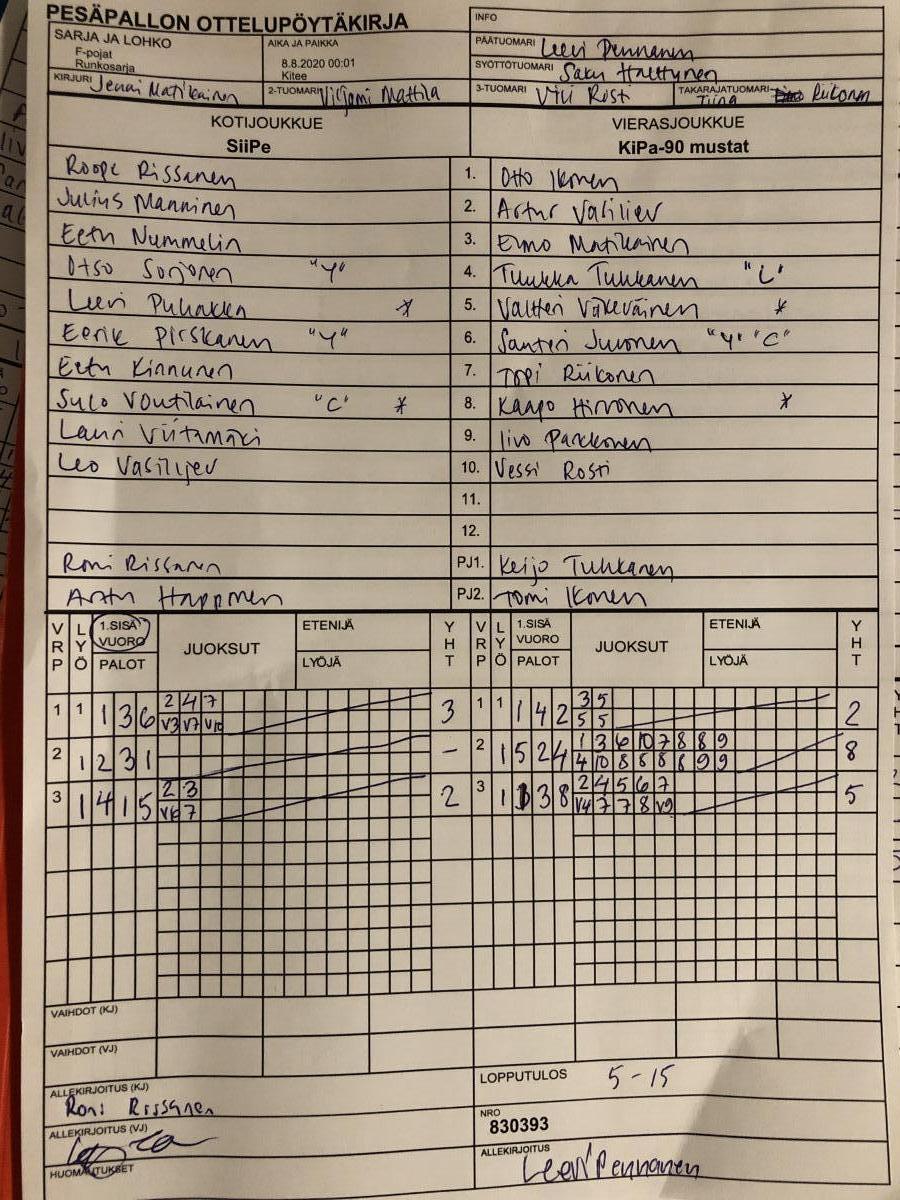 PESÄPALLON OTTELUPÖYTÄKIRJA
INFO
SARJA JA LOHKO
F-pojat
Runkosarja
AIKA JA PAIKKA
8.8.2020 00:01
Kitee
PÄÄTUOMARI Leevi Pennanen
SYÖTTÖTUOMARI
KIRJURI Jenni Matikainen
2-TUOMARI Viljami Mattila
3-TUOMARI Vili Rosti
TAKARAJATUOMARI Tiina Riikonen
KOTIJOUKKUE
SiiPe
VIERASJOUKKUE
KiPa-90 mustat
Roope Rissanen 1. Otto Ikonen
Julius Manninen 2. Artur Vasiliev
Eetu Nummelin 3. Eimo Matikainen
Otso Sorjonen "Y" 4. Tuukka Tuhkanen "L"
Leevi Puhakka * 5. Valtteri Väkeväinen *
Eerik Pirskanen "Y" 6. Santeri Juvonen "Y" "C"
Eetu Kinnunen 7. Topi Riikonen
Sulo Voutilainen "C" * 8. Kaapo Hirvonen *
Lauri Viitamäki 9. Iivo Parkkonen
Leo Vasilijev 10. Vessi Rosti
11.
12.
Roni Rissanen PJ1. Keijo Tuhkanen
Arttu Happonen PJ2. Tomi Ikonen
VRP LYÖ 1.SISÄ VUORO PALOT JUOKSUT ETENIJÄ LYÖJÄ YHT VRP LYÖ 1.SISÄ VUORO PALOT JUOKSUT ETENIJÄ LYÖJÄ YHT
1 1 1 3 6 2 4 7 3 1 1 1 4 2 3 5 2
V3 V7 V10 5 5
2 1 2 3 1 - 2 1 5 2 4 1 3 6 10 7 8 8 9 8
4 10 8 8 8 8 9 9
3 1 4 1 5 2 3 2 3 1 3 8 2 4 5 6 7 5
V6 7 V4 7 7 8 V9
VAIHDOT (KJ)
VAIHDOT (VJ)
ALLEKIRJOITUS (KJ)
Roni Rissanen
LOPPUTULOS 5-15
NRO
830393
ALLEKIRJOITUS (VJ)
ALLEKIRJOITUS
Leevi Pennanen
HUOMAUTUKSET